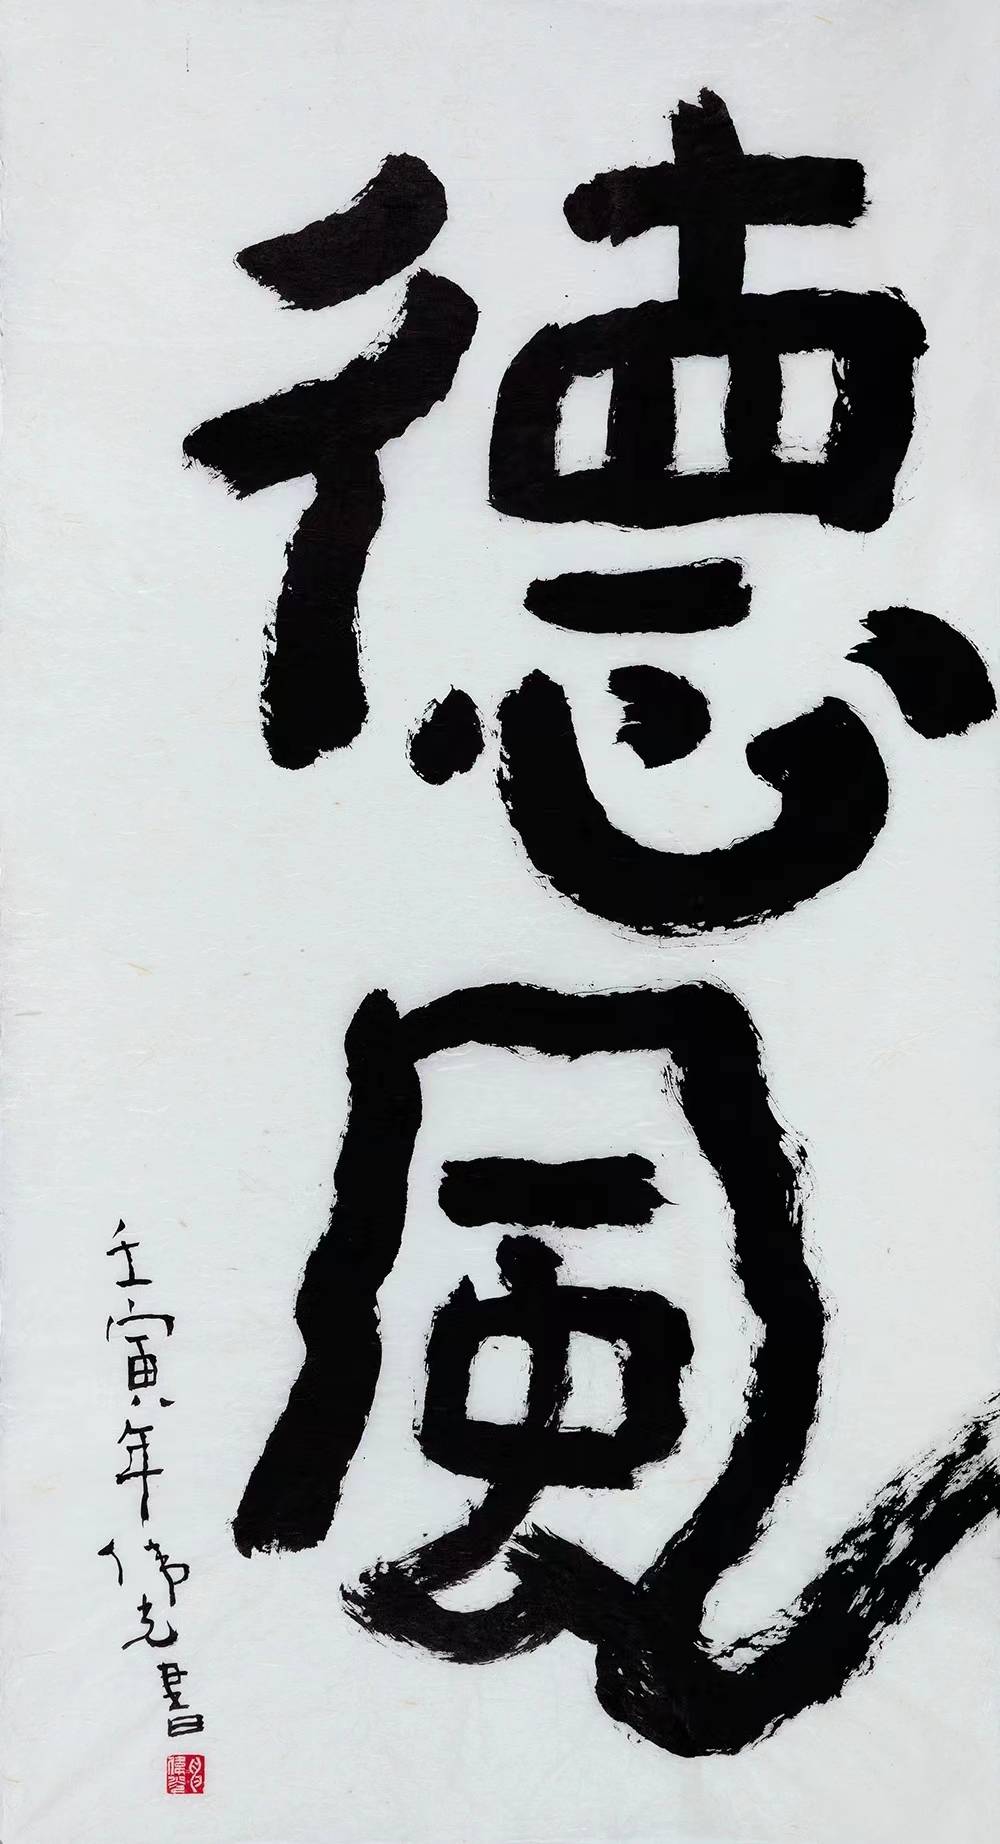 德風
壬寅年偉光書